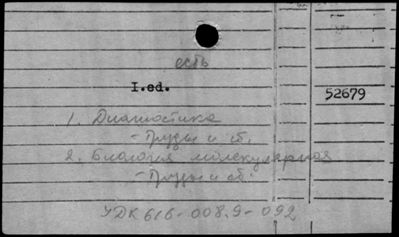 есть
I.ed.
52679
1. Диагностика
- Труды и сб.
2. Биология молекулярная
- Труды и сб.
УДК 616-008.9-092